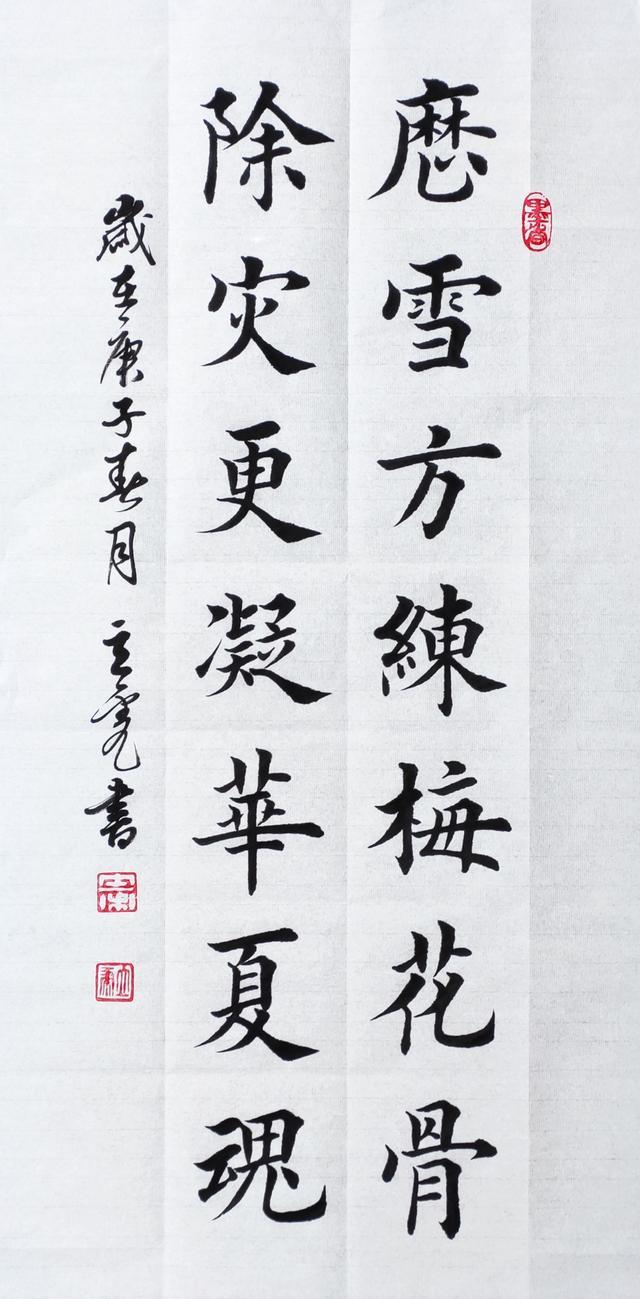 歷雪方練梅花骨
除灾更凝華夏魂
歲在庚子春月 立 書